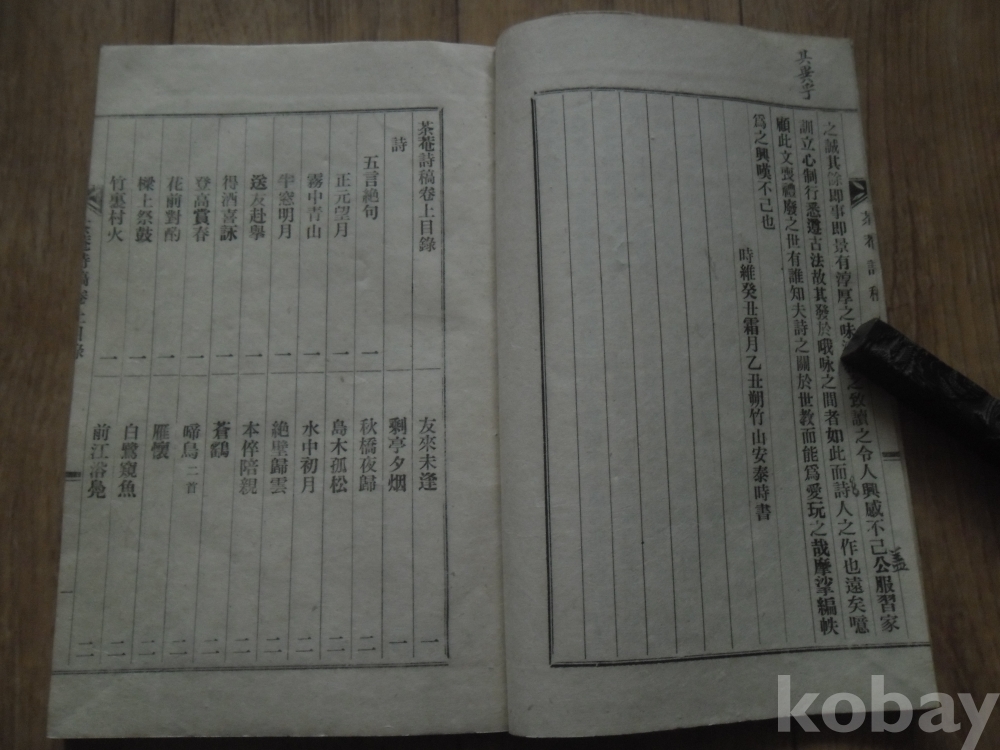 茶菴詩稿
之誠其餘即事即景有淳厚之味 之致讀之令人興感不己公服習家
蓋
訓立心制行悉遵古法故其發於哦咏之間者如此而詩人之作也遠矣噫
顧此文喪禮廢之世有誰知夫詩之關於世教而能爲愛玩之哉摩挲編帙
爲之興嘆不己也
時維癸丑霜月乙丑朔竹山安泰時書
茶菴詩稿卷上目錄
詩
五言絶句 一
正元望月 一
霧中青山 一
半窓明月 一
送友赴擧 一
得酒喜詠 一
登高賞春 一
花前對酌 一
樑上祭鼓 一
竹裏村火 一
友來未逢 一
剩亭夕烟 一
秋橋夜歸 二
島木孤松 二
水中初月 二
絶壁歸雲 二
本倅陪親 二
蒼鶴 二
啼鳥二首 二
雁懷 二
白鷺窺魚 二
前江浴鳧 二
茶菴詩稿卷上目錄
kobay